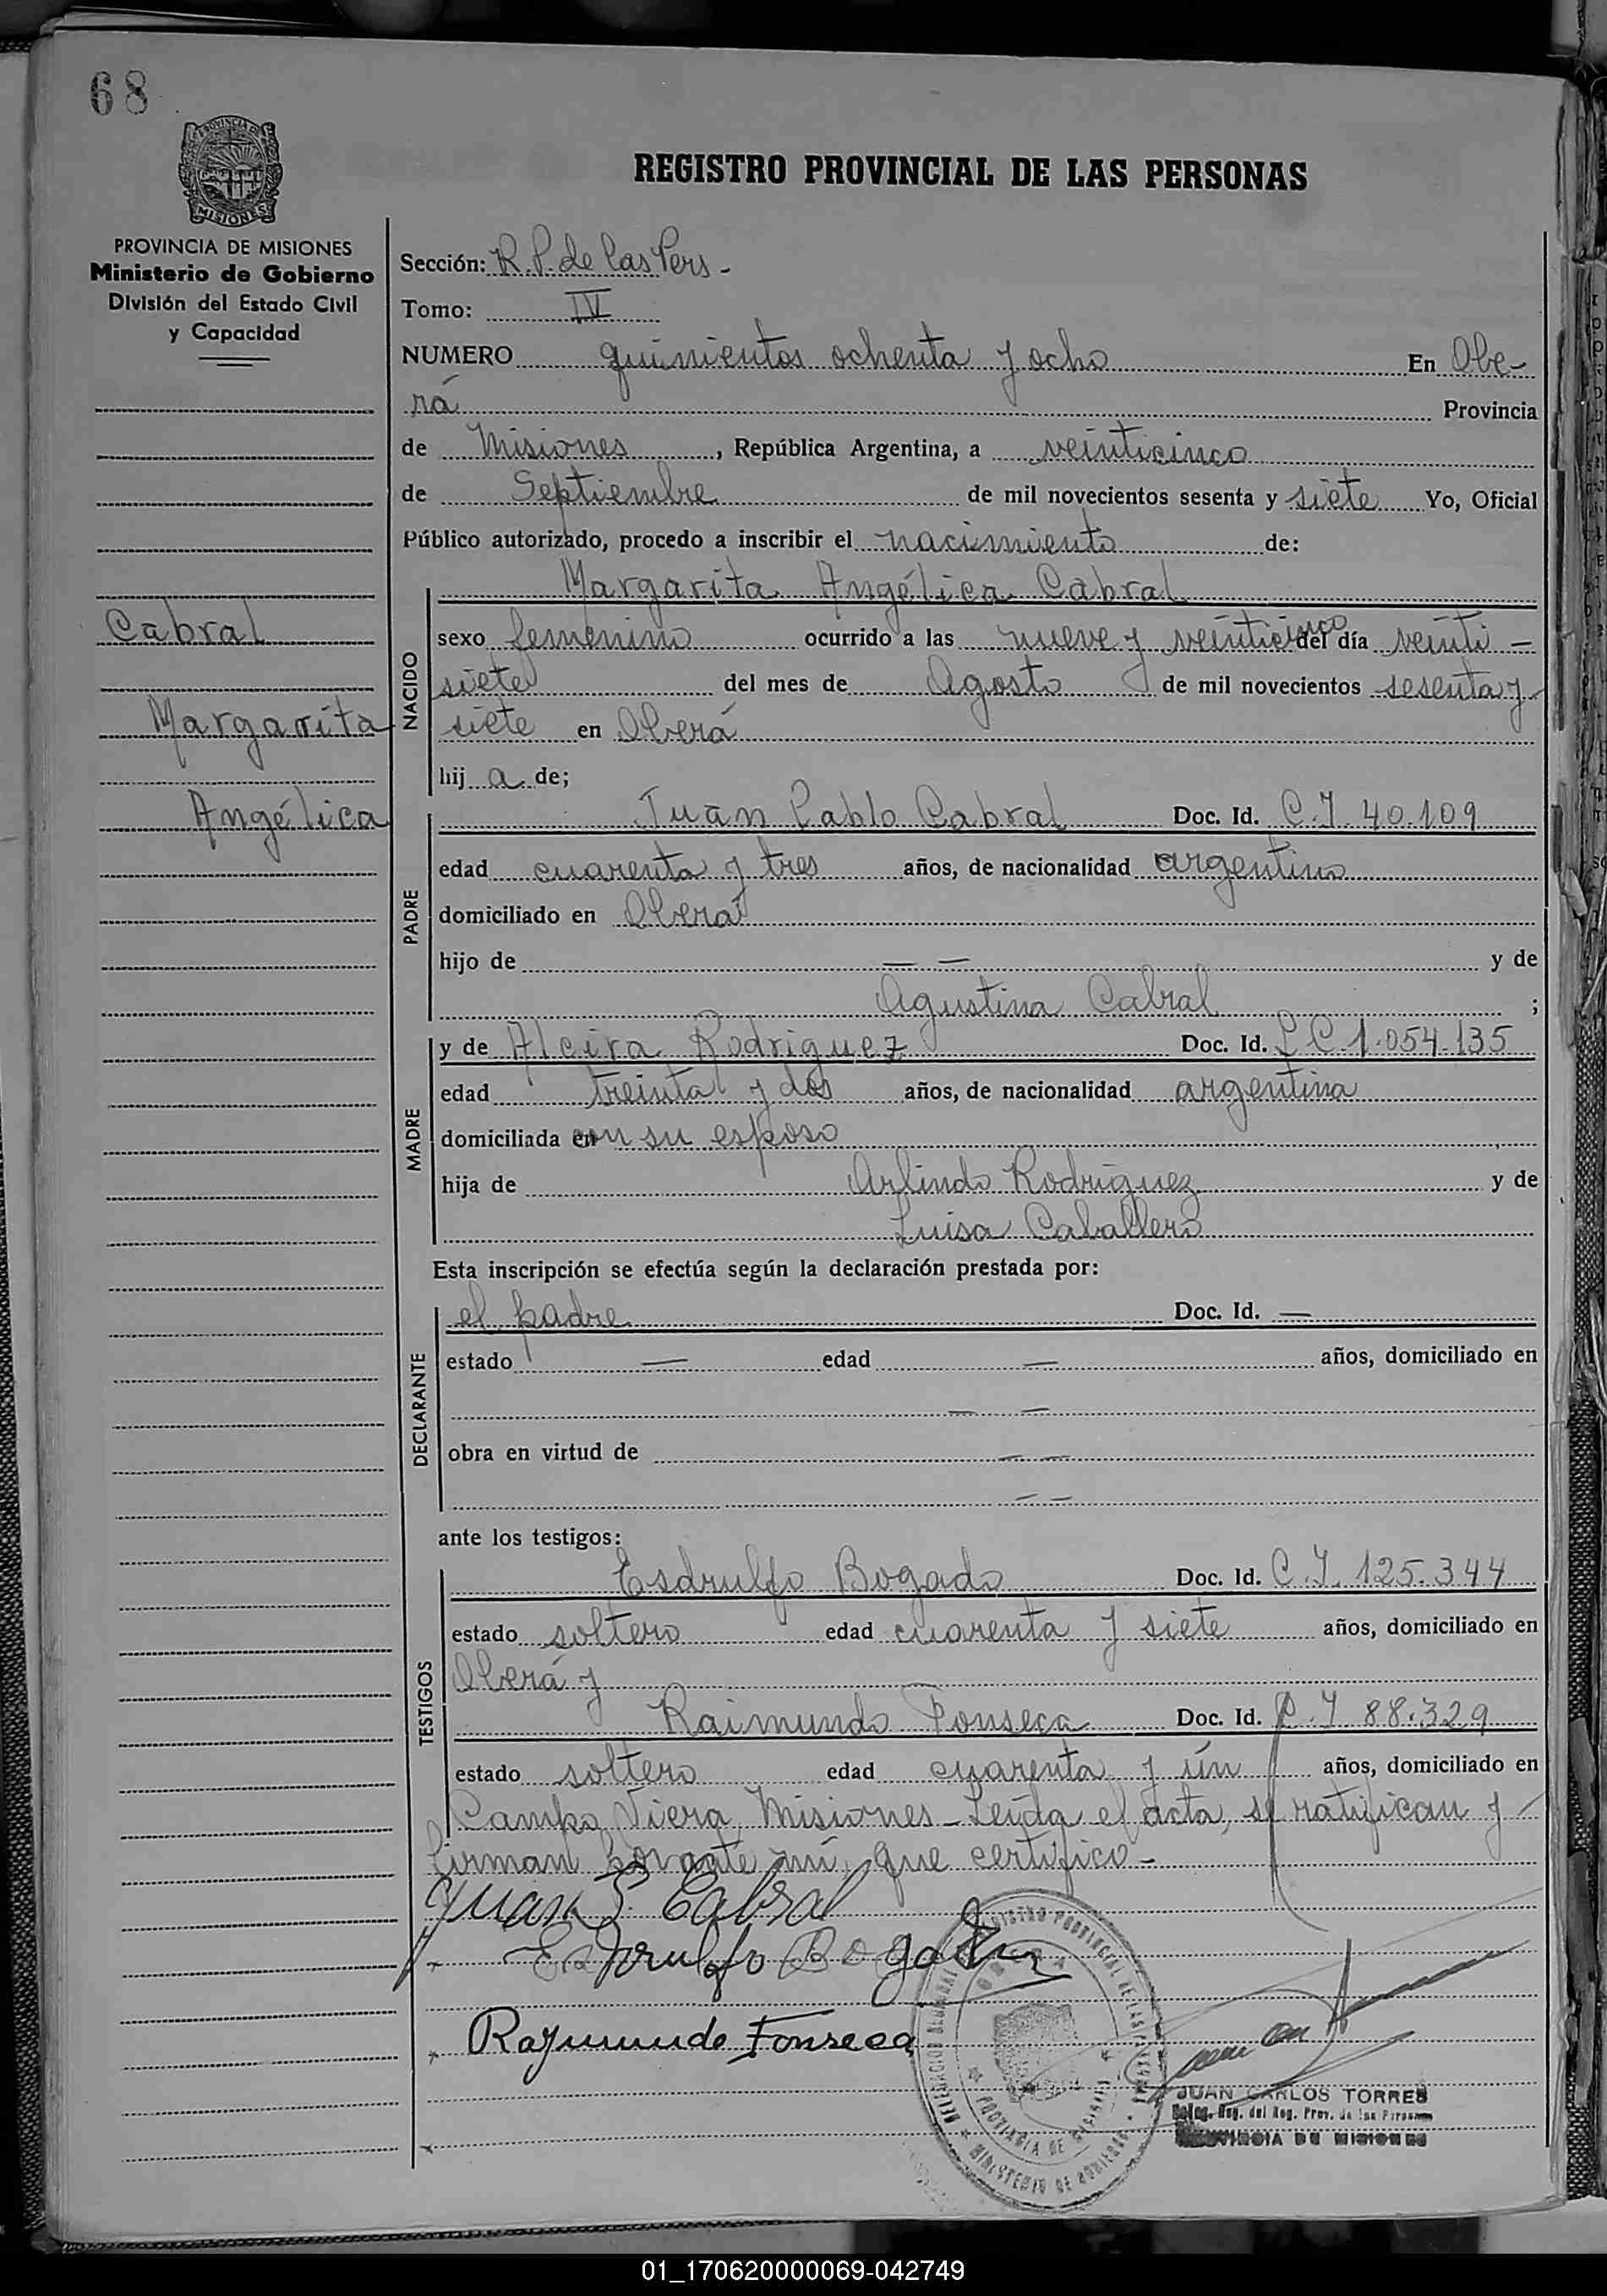 68
PROVINCIA DE
MISIONES
REGISTRO PROVINCIAL DE LAS PERSONAS
PROVINCIA DE MISIONES
Ministerio de Gobierno
División del Estado Civil
y Capacidad
Cabral
Margarita
Angélica
Sección: R. P. de las Pers -
Tomo: IV
NUMERO quinientos ochenta y ocho En Obe-
rá Provincia
de Misiones, República Argentina, a veinticinco
de Septiembre de mil novecientos sesenta y siete Yo, Oficial
Público autorizado, procedo a inscribir el nacimiento de:
NACIDO
Margarita Angélica Cabral
sexo femenino ocurrido a las nueve y veinticinco del día veinti-
siete del mes de Agosto de mil novecientos sesenta y
siete en Oberá
hij a de;
PADRE
Juan Pablo Cabral Doc. Id. C. I. 40.109
edad cuarenta y tres años, de nacionalidad argentino
domiciliado en Oberá
hijo de — — y de
Agustina Cabral ;
MADRE
y de Alcira Rodriguez Doc. Id. L C 1.054.135
edad treinta y dos años, de nacionalidad argentina
domiciliada en con su esposo
hija de Arlindo Rodriguez y de
Luisa Caballero
Esta inscripción se efectúa según la declaración prestada por:
DECLARANTE
el padre Doc. Id. —
estado — edad — años, domiciliado en
— —
obra en virtud de — —
— —
ante los testigos:
TESTIGOS
Esdrulfo Bogado Doc. Id. C. I. 125.344
estado soltero edad cuarenta y siete años, domiciliado en
Oberá y
Raimundo Fonseca Doc. Id. C. I 88.329
estado soltero edad cuarenta y ún años, domiciliado en
Campo Viera, Misiones - Leída el acta, se ratifican y
firman por ante mí, que certifico -
Juan P. Cabral
Esdrulfo Bogado
Raymundo Fonseca
REGISTRO PROVINCIAL DE LAS PERSONAS
OBERA
PROVINCIA DE MISIONES
MINISTERIO DE GOBIERNO
JUAN CARLOS TORRES
Reg. del Reg. Prov. de las Personas
PROVINCIA DE MISIONES
01_170620000069-042749